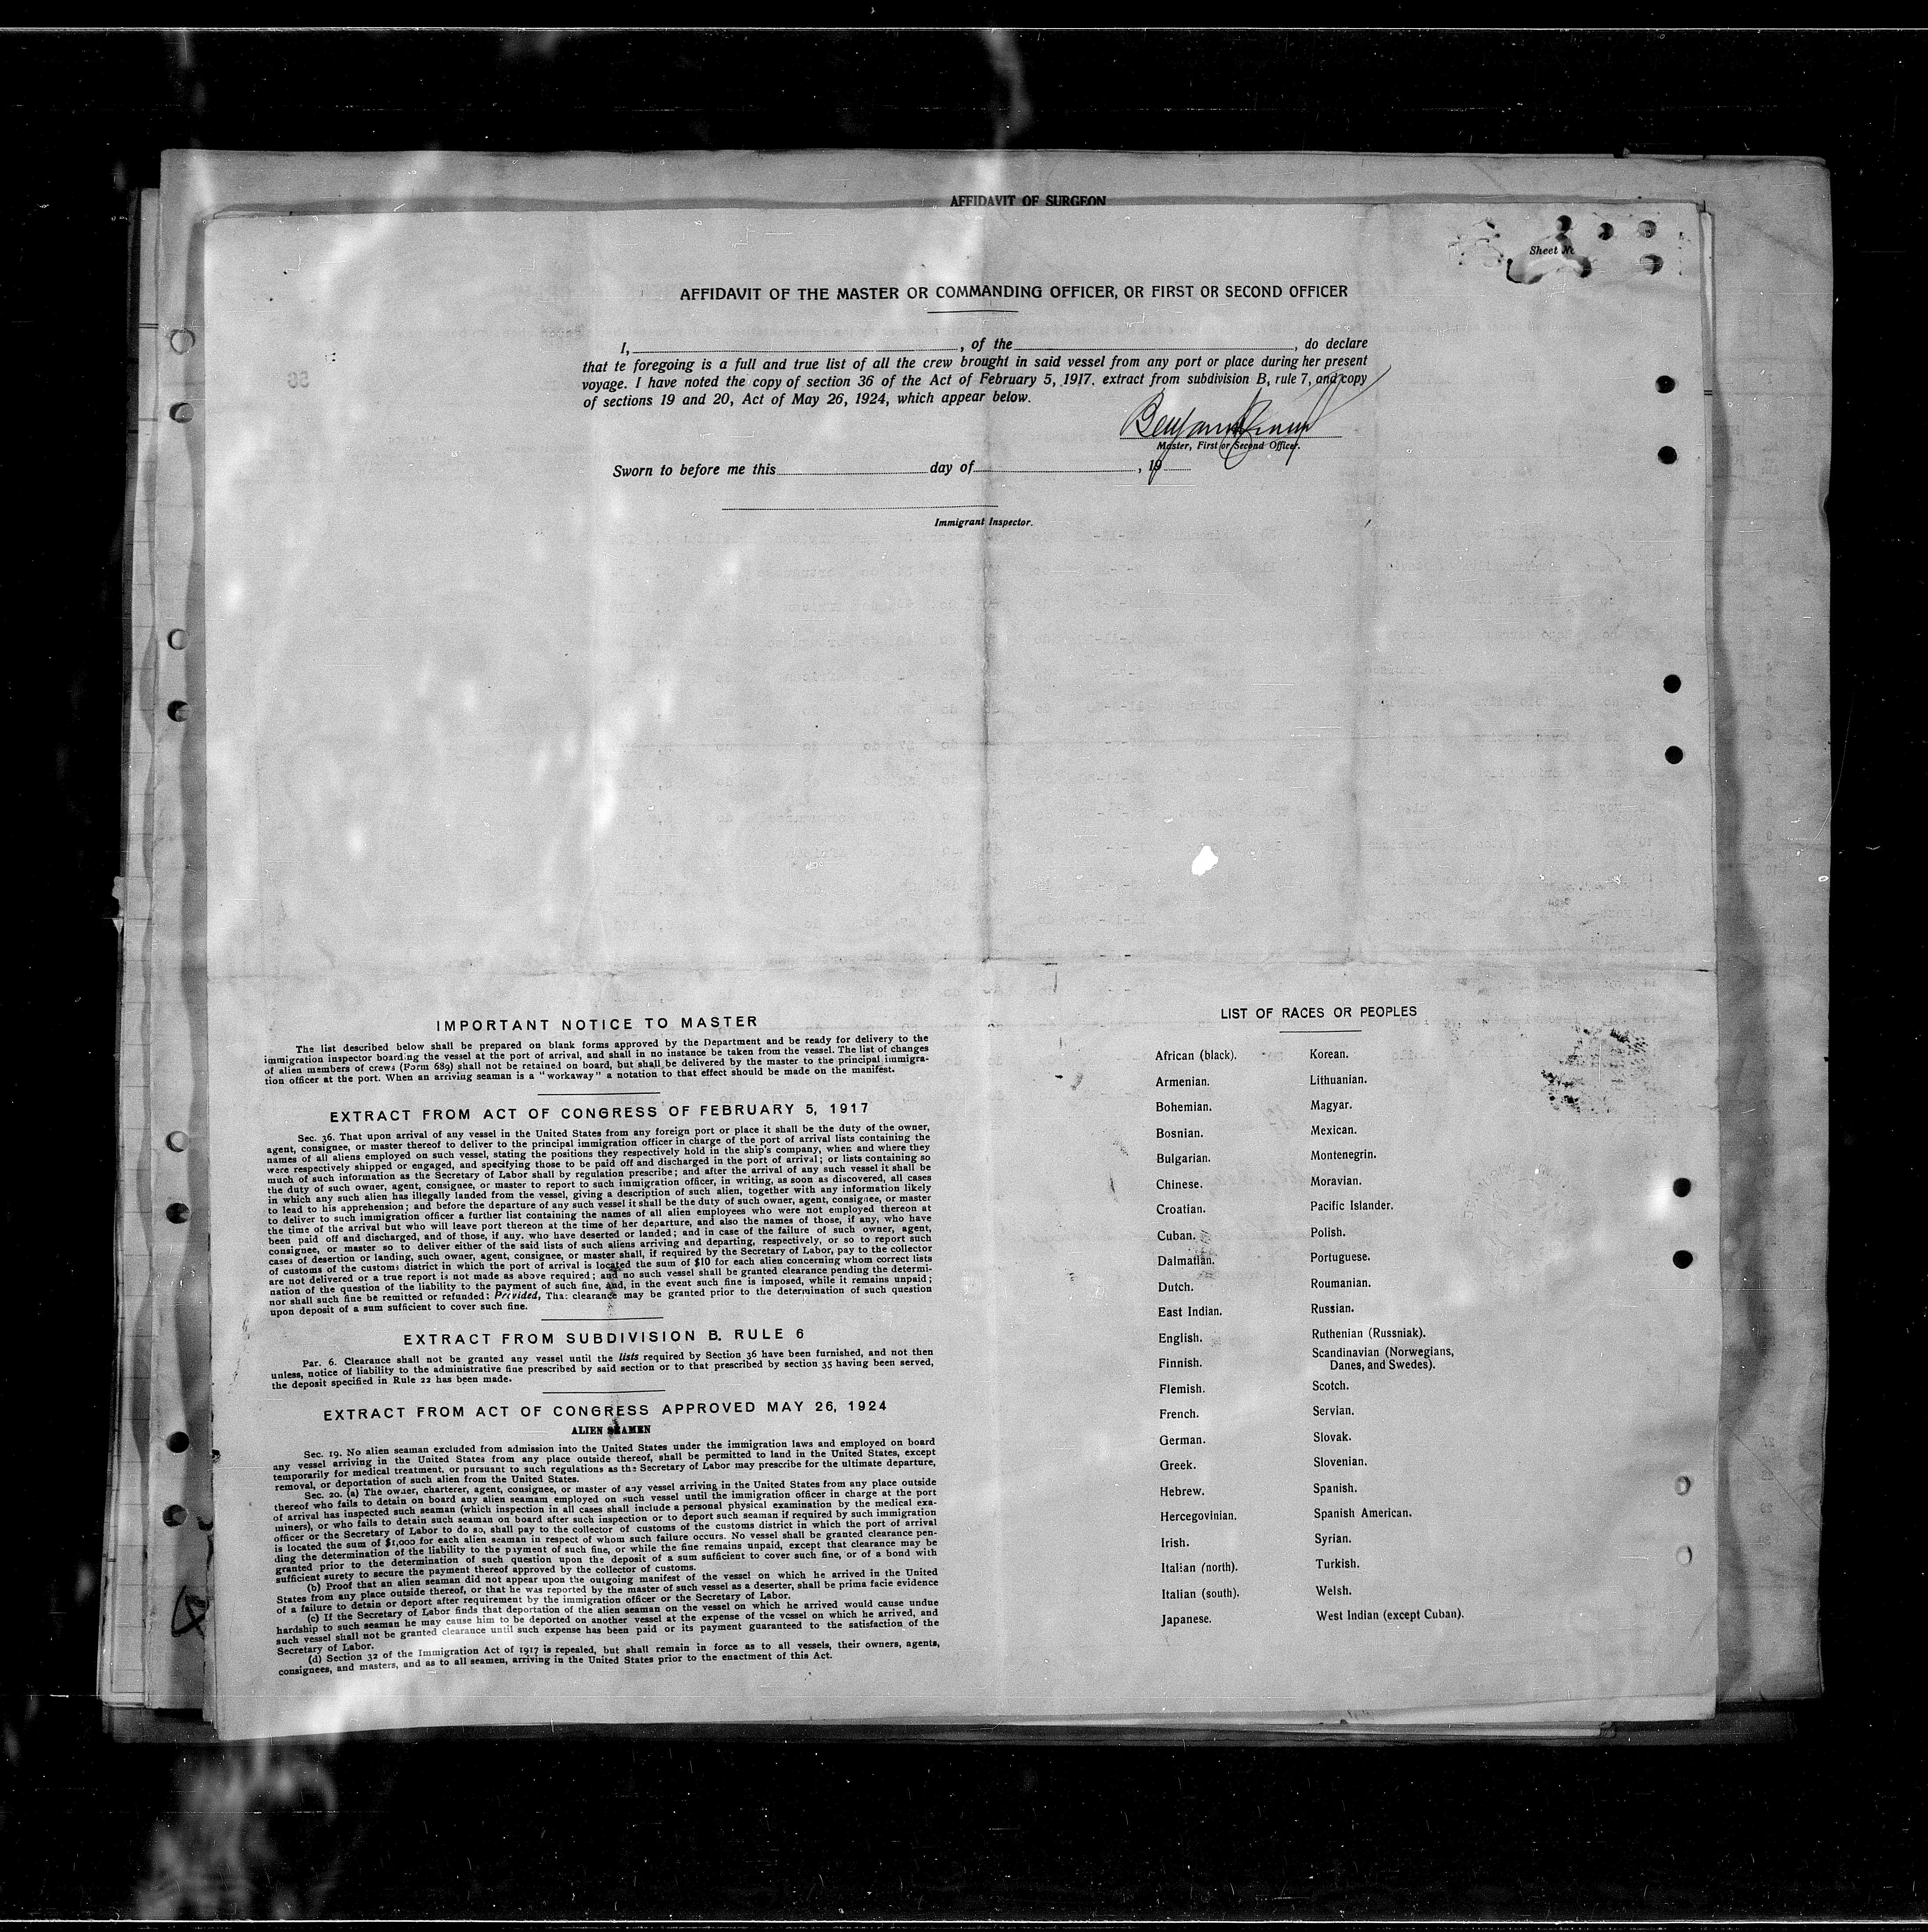 AFFIDAVIT OF SURGEON
Sheet No
AFFIDAVIT OF THE MASTER OR COMMANDING OFFICER, OR FIRST OR SECOND OFFICER
I, , of the , do declare
that te foregoing is a full and true list of all the crew brought in said vessel from any port or place during her present
voyage. I have noted the copy of section 36 of the Act of February 5, 1917, extract from subdivision B, rule 7, and copy
of sections 19 and 20, Act of May 26, 1924, which appear below.
Master, First or Second Officer.
Sworn to before me this day of , 19
Immigrant Inspector.
IMPORTANT NOTICE TO MASTER
The list described below shall be prepared on blank forms approved by the Department and be ready for delivery to the
immigration inspector boarding the vessel at the port of arrival, and shall in no instance be taken from the vessel. The list of changes
of alien members of crews (Form 689) shall not be retained on board, but shall be delivered by the master to the principal immigra-
tion officer at the port. When an arriving seaman is a "workaway" a notation to that effect should be made on the manifest.
EXTRACT FROM ACT OF CONGRESS OF FEBRUARY 5, 1917
Sec. 36. That upon arrival of any vessel in the United States from any foreign port or place it shall be the duty of the owner,
agent, consignee, or master thereof to deliver to the principal immigration officer in charge of the port of arrival lists containing the
names of all aliens employed on such vessel, stating the positions they respectively hold in the ship's company, when and where they
were respectively shipped or engaged, and specifying those to be paid off and discharged in the port of arrival; or lists containing so
much of such information as the Secretary of Labor shall by regulation prescribe; and after the arrival of any such vessel it shall be
the duty of such owner, agent, consignee, or master to report to such immigration officer, in writing, as soon as discovered, all cases
in which any such alien has illegally landed from the vessel, giving a description of such alien, together with any information likely
to lead to his apprehension; and before the departure of any such vessel it shall be the duty of such owner, agent, consignee, or master
to deliver to such immigration officer a further list containing the names of all alien employees who were not employed thereon at
the time of the arrival but who will leave port thereon at the time of her departure, and also the names of those, if any, who have
been paid off and discharged, and of those, if any. who have deserted or landed; and in case of the failure of such owner, agent,
consignee, or master so to deliver either of the said lists of such aliens arriving and departing, respectively, or so to report such
cases of desertion or landing, such owner, agent, consignee, or master shall, if required by the Secretary of Labor, pay to the collector
of customs of the customs district in which the port of arrival is located the sum of $10 for each alien concerning whom correct lists
are not delivered or a true report is not made as above required; and no such vessel shall be granted clearance pending the determi-
nation of the question of the liability to the payment of such fine, and, in the event such fine is imposed, while it remains unpaid;
nor shall such fine be remitted or refunded: Provided, That clearance may be granted prior to the determination of such question
upon deposit of a sum sufficient to cover such fine.
EXTRACT FROM SUBDIVISION B. RULE 6
Par. 6. Clearance shall not be granted any vessel until the lists required by Section 36 have been furnished, and not then
unless, notice of liability to the administrative fine prescribed by said section or to that prescribed by section 35 having been served,
the deposit specified in Rule 22 has been made.
EXTRACT FROM ACT OF CONGRESS APPROVED MAY 26, 1924
ALIEN SEAMEN
Sec. 19. No alien seaman excluded from admission into the United States under the immigration laws and employed on board
any vessel arriving in the United States from any place outside thereof, shall be permitted to land in the United States, except
temporarily for medical treatment, or pursuant to such regulations as the Secretary of Labor may prescribe for the ultimate departure,
removal, or deportation of such alien from the United States.
Sec. 20. (a) The owner, charterer, agent, consignee, or master of any vessel arriving in the United States from any place outside
thereof who fails to detain on board any alien seamam employed on such vessel until the immigration officer in charge at the port
of arrival has inspected such seaman (which inspection in all cases shall include a personal physical examination by the medical exa-
miners), or who fails to detain such seaman on board after such inspection or to deport such seaman if required by such immigration
officer or the Secretary of Labor to do so, shall pay to the collector of customs of the customs district in which the port of arrival
is located the sum of $1,000 for each alien seaman in respect of whom such failure occurs. No vessel shall be granted clearance pen-
ding the determination of the liability to the payment of such fine, or while the fine remains unpaid, except that clearance may be
granted prior to the determination of such question upon the deposit of a sum sufficient to cover such fine, or of a bond with
sufficient surety to secure the payment thereof approved by the collector of customs.
(b) Proof that an alien seaman did not appear upon the outgoing manifest of the vessel on which he arrived in the United
States from any place outside thereof, or that he was reported by the master of such vessel as a deserter, shall be prima facie evidence
of a failure to detain or deport after requirement by the immigration officer or the Secretary of Labor.
(c) If the Secretary of Labor finds that deportation of the alien seaman on the vessel on which he arrived would cause undue
hardship to such seaman he may cause him to be deported on another vessel at the expense of the vessel on which he arrived, and
such vessel shall not be granted clearance until such expense has been paid or its payment guaranteed to the satisfaction of the
Secretary of Labor.
(d) Section 32 of the Immigration Act of 1917 is repealed, but shall remain in force as to all vessels, their owners, agents,
consignees, and masters, and as to all seamen, arriving in the United States prior to the enactment of this Act.
LIST OF RACES OR PEOPLES
African (black).
Armenian.
Bohemian.
Bosnian.
Bulgarian.
Chinese.
Croatian.
Cuban.
Dalmatian.
Dutch.
East Indian.
English.
Finnish.
Flemish.
French.
German.
Greek.
Hebrew.
Hercegovinian.
Irish.
Italian (north).
Italian (south).
Japanese.
Korean.
Lithuanian.
Magyar.
Mexican.
Montenegrin.
Moravian.
Pacific Islander.
Polish.
Portuguese.
Roumanian.
Russian.
Ruthenian (Russniak).
Scandinavian (Norwegians,
Danes, and Swedes).
Scotch.
Servian.
Slovak.
Slovenian.
Spanish.
Spanish American.
Syrian.
Turkish.
Welsh.
West Indian (except Cuban).